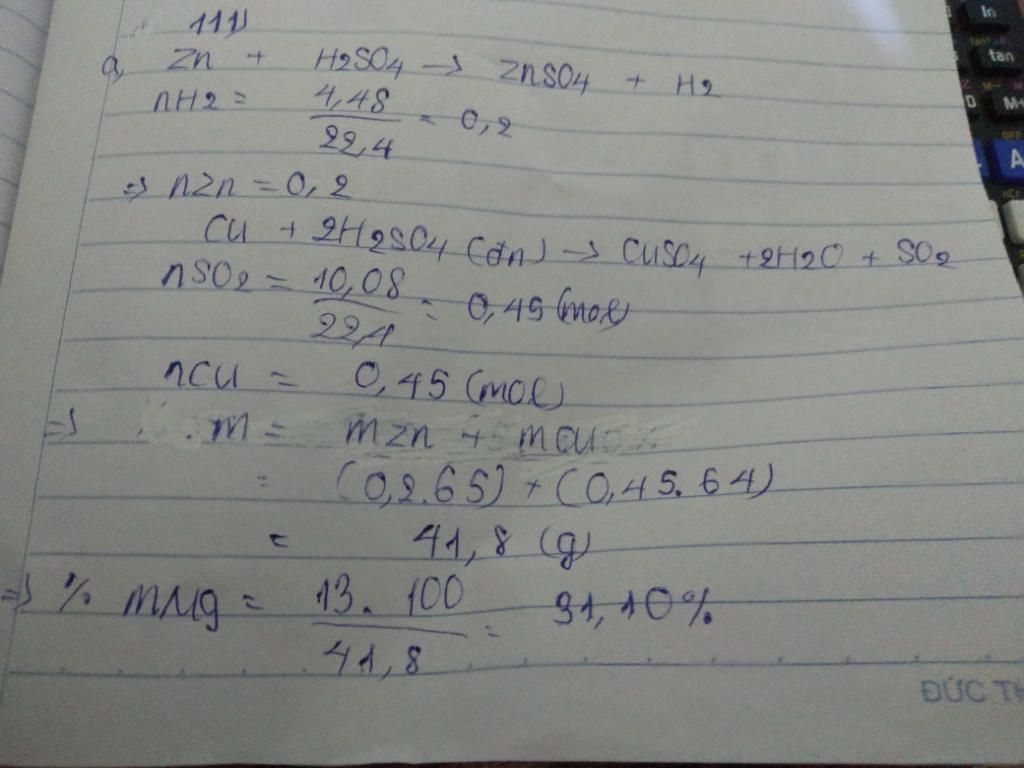 111)
a, Zn + H2SO4 → ZnSO4 + H2
nH2 = 4,48 / 22,4 = 0,2
=> nZn = 0,2
Cu + 2H2SO4 (đn) → CuSO4 + 2H2O + SO2
nSO2 = 10,08 / 22,4 = 0,45 (mol)
nCu = 0,45 (mol)
=> m = mZn + mCu
= (0,2.65) + (0,45.64)
= 41,8 (g)
=> % mMg = 13.100 / 41,8 = 31,10%
ĐỨC
In
tan
M+